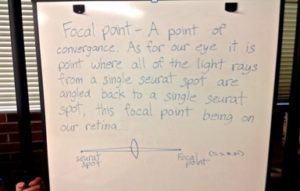 Focal point - A point of
convergence. As for our eye it is
point where all of the light rays
from a single seurat spot are
angled back to a single seurat
spot, this focal point being on
our retina
seurat spot
Focal point